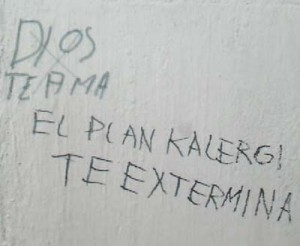 DIOS
TE AMA
EL PLAN KALERGI
TE EXTERMINA